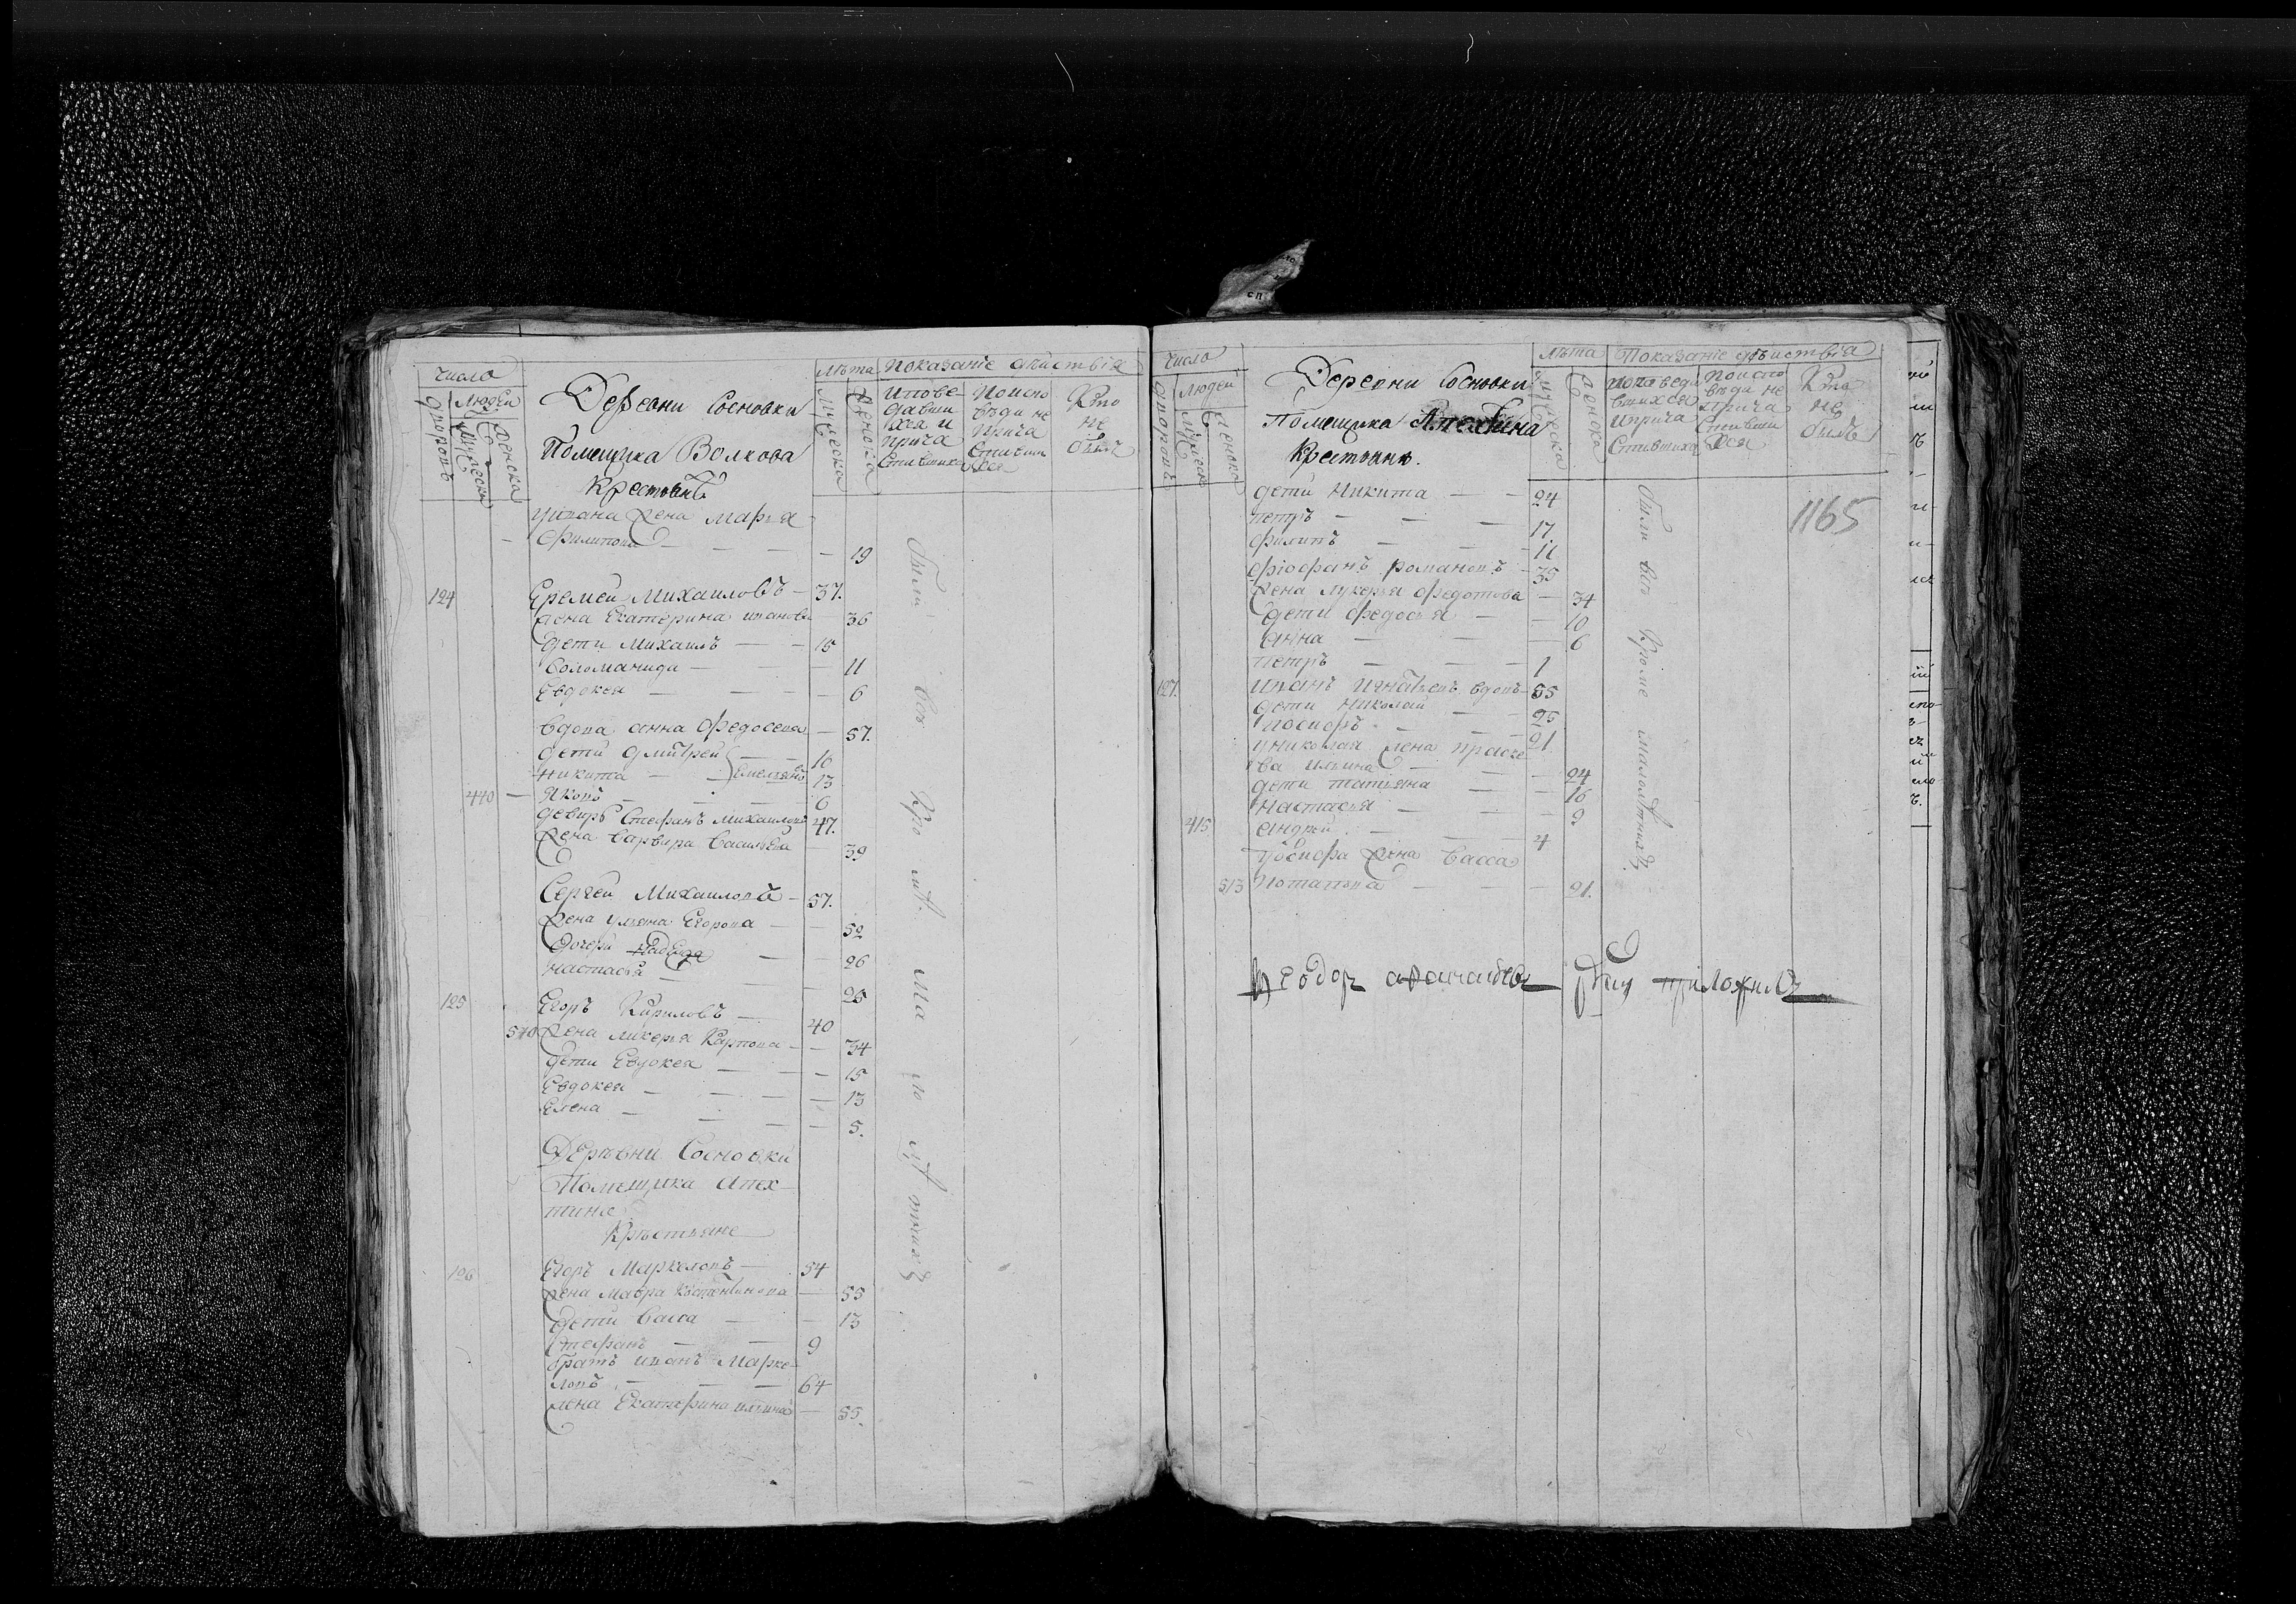 число
людей
дворовъ
мужеска
женска
Деревни Сосновки
Помещика Волкова
Крестьянъ
лѣта
мужеска
женска
показанiе
Испове-
давши
хся и
прича
стившихся
поиспо
вѣди не
прича
Кто
не
былъ
уивана жена марья
Филипова — — — 19
124 Еремеи Михаиловъ — 37.
жена Екатерина иванова 36
дети Михаилъ — — 15
Соломанида — — 11
Евдокея — — — 6
вдова анна Федосеева — 57.
дети дмитреи — 16
никита — Емельяновы 13
440 — яковъ — — 6
деверь Стефанъ михаиловъ 47.
жена варвара васильева — 39
Сергеи Михаиловъ — 57.
жена ульяна Егорова — 52
дочери — 26
настасья — — 25
125 Егоръ Кириловъ — 40
510 жена лукерья Карпова — 34
дети Евдокея — — 15
Евдокея — — — 13
Елена — — — 5.
Деревни Сосновки
Помещика Апех
тина
Крестьяне
126 Егоръ Маркеловъ — 54
жена Мавра Костентинова — 55
дети васса — — 13
Стефанъ — — 9
братъ иванъ Марке
ловъ — — — 64
жена Екатерина ильина — 55.
были все Кро мѣ ма ло лѣтнихъ
число
людей
дворовъ
мужеска
женска
Деревни Сосновки
Помещика Апехтина
Крестьянъ.
лѣта
мужеска
женска
Показанiе дѣиствiя
поиспо
вѣди не
прича
стивши
хся
Кто
не
былъ
1165
дети Никита — — 24
петръ — — — 17.
филипъ — — 11
Фiофанъ романовъ — 35
жена лукерья Федотова — 34
дети Федосья — — 10
анна — — — 6
петръ — — — 1
127. Иванъ Игнатьевъ вдовъ — 55
дети Николай — — 25
иосифъ — — 21
униколая жена праске
ва ильина — — 24
дети татьяна — — 16
настасья — — 9
415 андреи — — 4
уиосифа жена васса
513 потапова — — 21.
были все Кроме малолѣтнихъ
Феодор афанасьев руку приложилъ